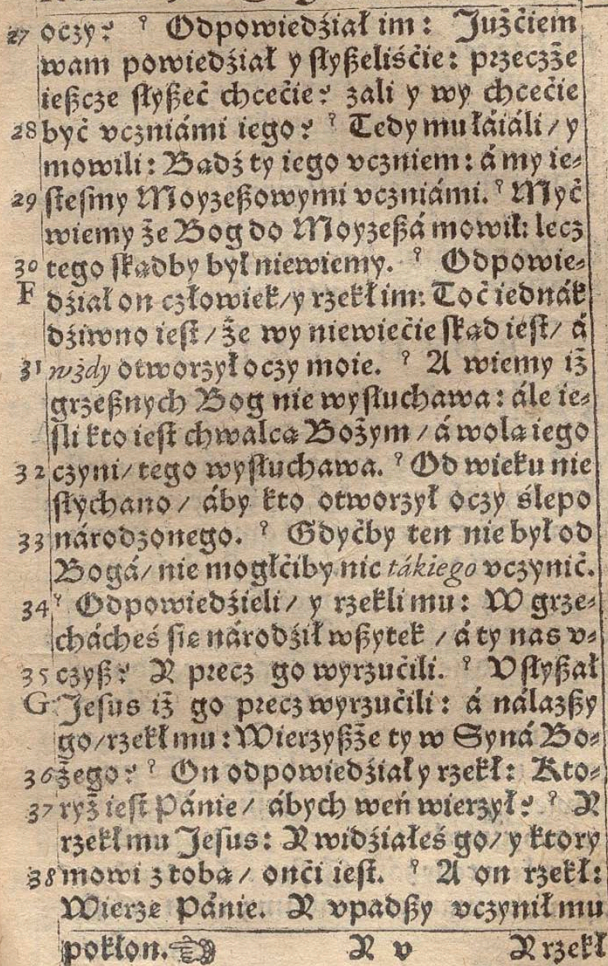 27 oczy? ? Odpowiedźiał im: Jużćiem
wam powiedźiał y słyßeliśćie: przeczże
ießcze słyßeć chcećie? zali y wy chcećie
28 być vczniámi iego? ? Tedy mu łáiáli / y
mowili: Bądź ty iego vczniem: á my ie-
29 steśmy Moyzeßowymi vczniámi. ? Myć
wiemy że Bog do Moyzeßá mowił: lecz
30 tego skądby był niewiemy. ? Odpowie-
F dźiał on człowiek / y rzekł im: Toć iednák
dźiwno iest / że wy niewiećie skąd iest / á
31 wżdy otworzył oczy moie. ? A wiemy iż
grzeßnych Bog nie wysłuchawa: ále ie-
sli kto iest chwalcą Bożym / á wolą iego
32 czyni / tego wysłuchawa. ? Od wieku nie
słychano / áby kto otworzył oczy ślepo
33 národzonego. ? Gdyćby ten nie był od
Bogá / nie mogłćiby nic tákiego vczynić.
34 ? Odpowiedźieli / y rzekli mu: W grze-
cháchéś się národźił wßytek / á ty nas v-
35 czyß? Y precz go wyrzućili. ? Vsłyßał
G Jesus iż go precz wyrzućili: á nálazßy
go / rzekł mu: Wierzyßże ty w Syná Bo-
36 żego? ? On odpowiedźiał y rzekł: Kto-
37 ryż iest Pánie / ábych weń wierzył? ? Y
rzekł mu Jesus: Y widźiałeś go / y ktory
38 mowi z tobą / onći iest. ? A on rzekł:
Wierzę Pánie. Y vpadßy vczynił mu
pokłon. Y v Y rzekł